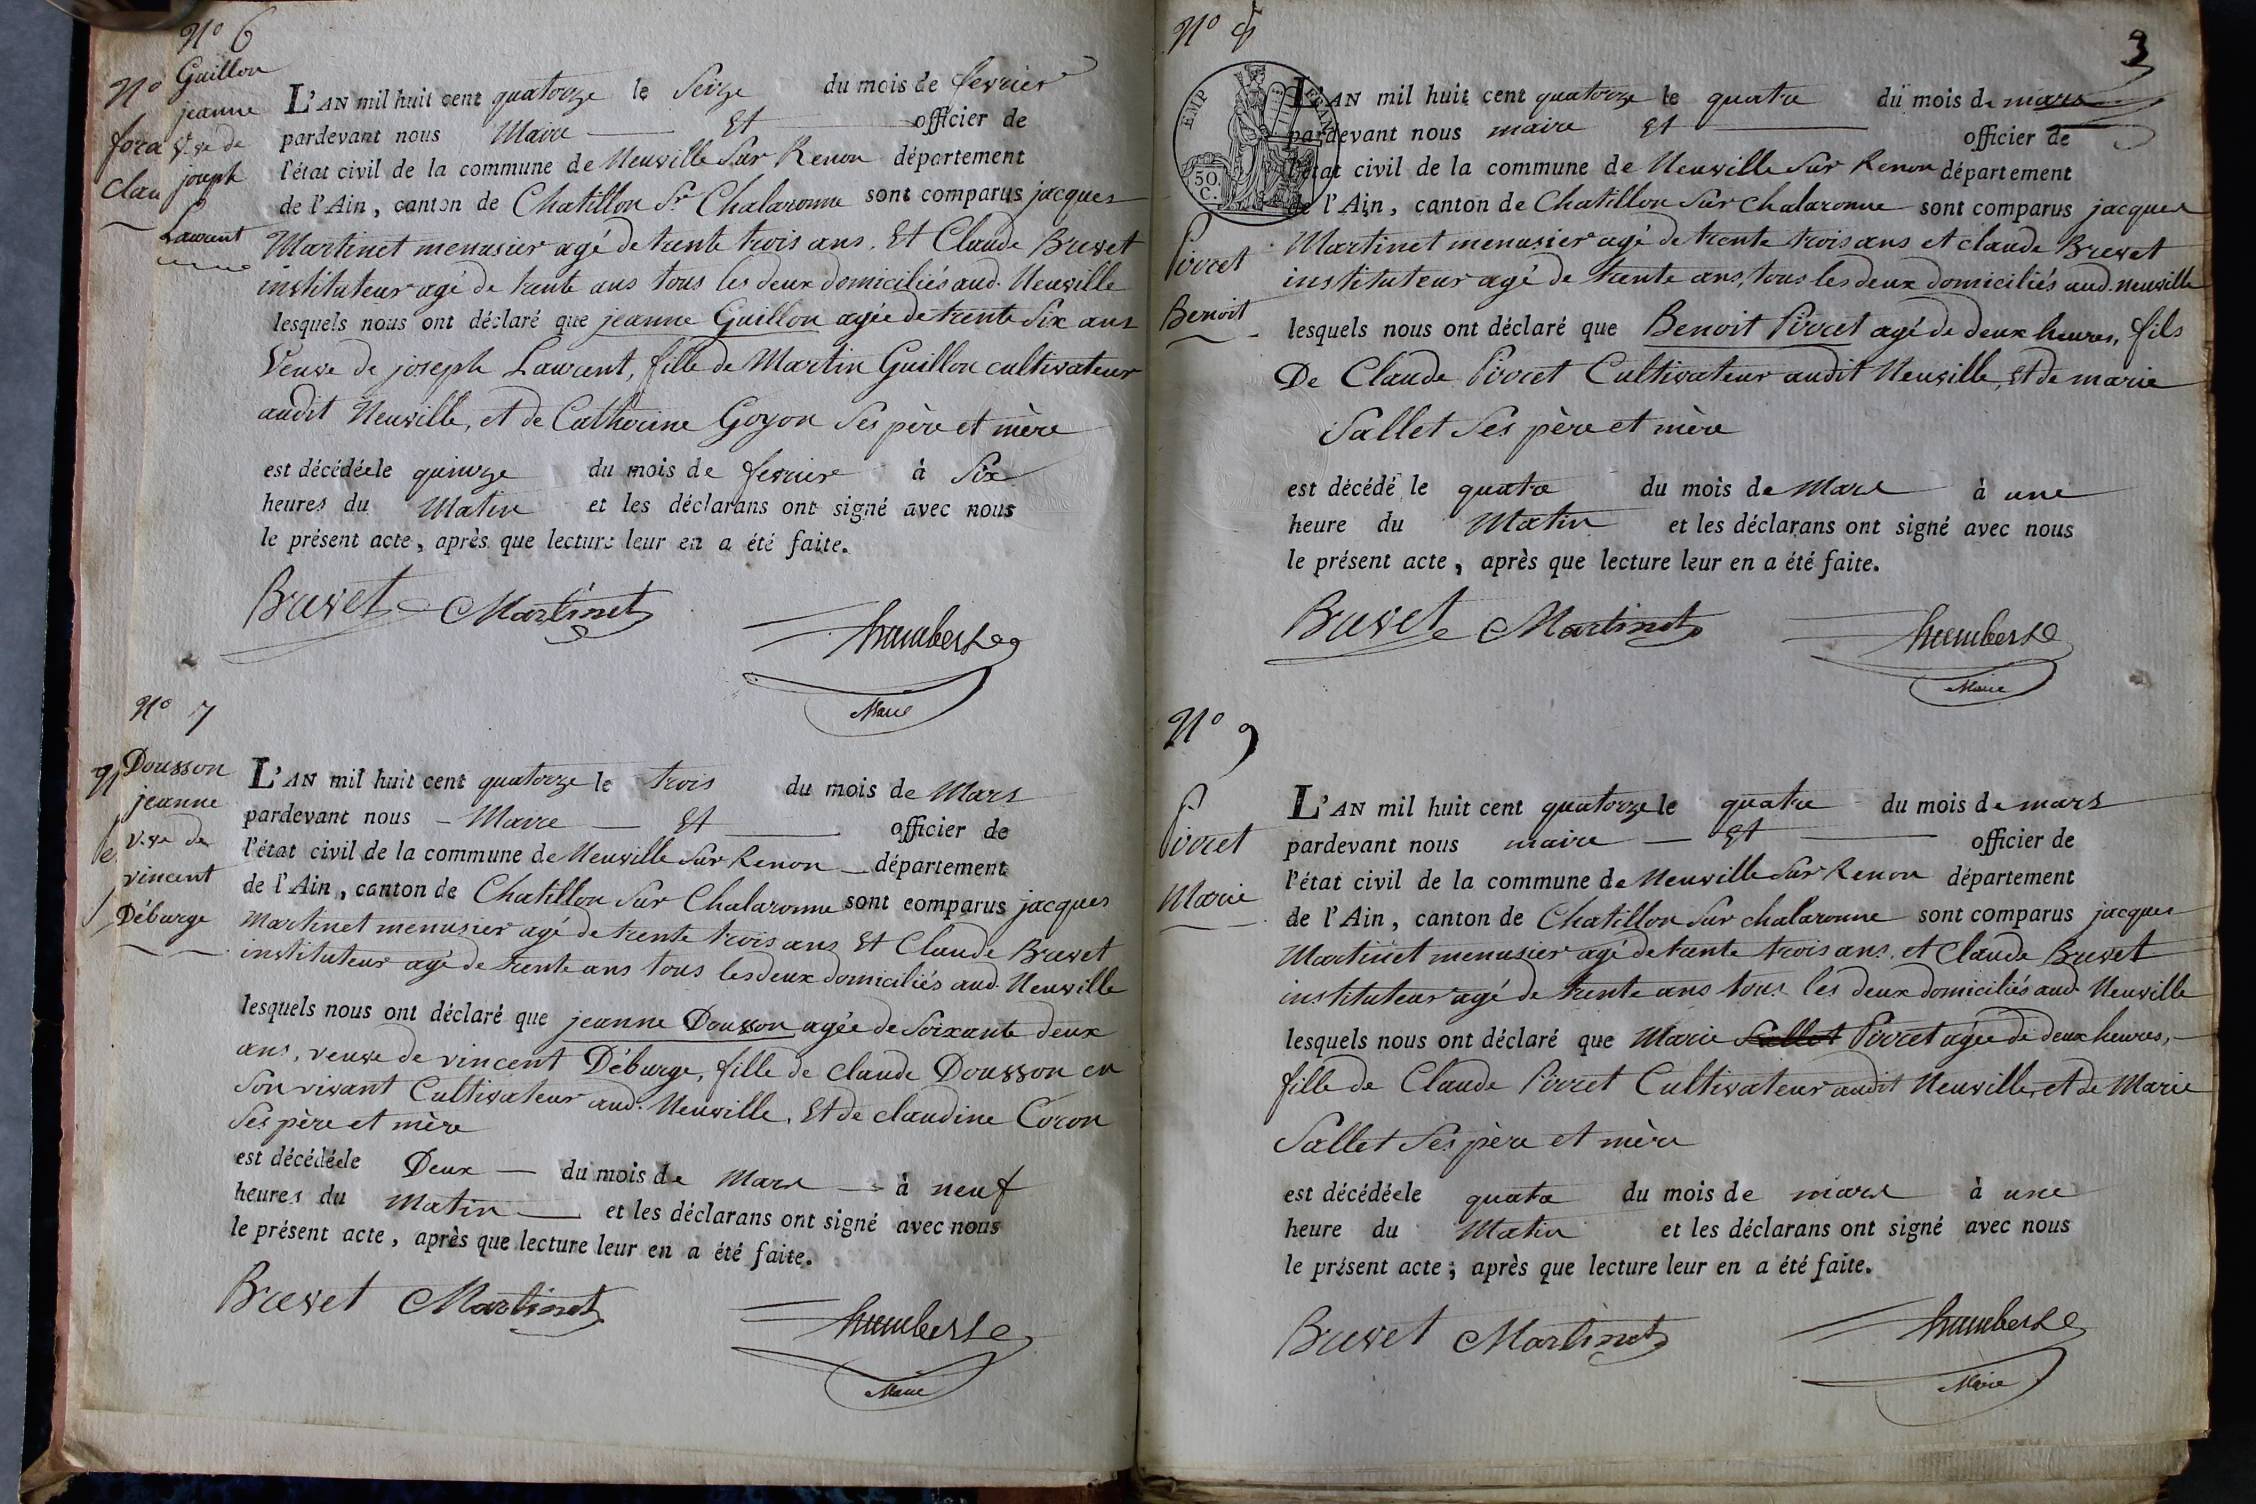 N.o 6
Guillon
jeanne
v.ve de
joseph
Laurent
L'AN mil huit cent quatorze le Seize du mois de fevrier
pardevant nous Maire Et officier de
l'état civil de la commune de Neuville Sur Renon département
de l'Ain, canton de Chatillon Sr Chalaronne sont comparus jacques
Martinet menusier agé de trente trois ans. Et Claude Brevet
instituteur agé de trente ans tous les deux domiciliés aud. Neuville
lesquels nous ont déclaré que jeanne Guillon agée de trente Six ans
Veuve de joseph Laurent, fille de Martin Guillon cultivateur
audit Neuville, et de Catherine Goyon Ses père et mère
est décédée le quinze du mois de fevrier à Six
heures du Matin et les déclarans ont signé avec nous
le présent acte, après que lecture leur en a été faite.
Brevet Martinet
Maire
N.o 7
Dousson
jeanne
v.ve de
vincent
Déburge
L'AN mil huit cent quatorze le trois du mois de Mars
pardevant nous Maire Et officier de
l'état civil de la commune de Neuville Sur Renon département
de l'Ain, canton de Chatillon Sur Chalaronne sont comparus jacques
Martinet menusier agé de trente trois ans Et Claude Brevet
instituteur agé de trente ans tous les deux domiciliés aud. Neuville
lesquels nous ont déclaré que jeanne Dousson agée de Soixante deux
ans, veuve de vincent Déburge, fille de claude Dousson en
Son vivant Cultivateur aud. Neuville, Et de claudine Coron
Ses père et mère
est décédée le Deux du mois de Mars à neuf
heures du Matin et les déclarans ont signé avec nous
le présent acte, après que lecture leur en a été faite.
Brevet Martinet
Maire
3
EMP FRAN
50
C.
Pirret
Benoit
L'AN mil huit cent quatorze le quatre du mois de mars
pardevant nous maire Et officier de
l'état civil de la commune de Neuville Sur Renon département
de l'Ain, canton de Chatillon Sur Chalaronne sont comparus jacques
Martinet menusier agé de trente trois ans et claude Brevet
instituteur agé de trente ans, tous les deux domiciliés aud. neuville
lesquels nous ont déclaré que Benoit Pirret agé de deux heures, fils
De Claude Pirret Cultivateur audit Neuville, Et de marie
Sallet Ses père et mère
est décédé le quatre du mois de Mars à une
heure du Matin et les déclarans ont signé avec nous
le présent acte, après que lecture leur en a été faite.
Brevet Martinet
Maire
N.o 9
Pirret
Marie
L'AN mil huit cent quatorze le quatre du mois de mars
pardevant nous maire Et officier de
l'état civil de la commune de Neuville Sur Renon département
de l'Ain, canton de Chatillon Sur chalaronne sont comparus jacques
Martinet menusier agé de trente trois ans. et Claude Brevet
instituteur agé de trente ans tous les deux domiciliés aud. Neuville
lesquels nous ont déclaré que Marie Sallet Pirret agée de deux heures,
fille de Claude Pirret Cultivateur audit Neuville, et de Marie
Sallet Ses père et mère
est décédée le quatre du mois de mars à une
heure du Matin et les déclarans ont signé avec nous
le présent acte, après que lecture leur en a été faite.
Brevet Martinet
Maire